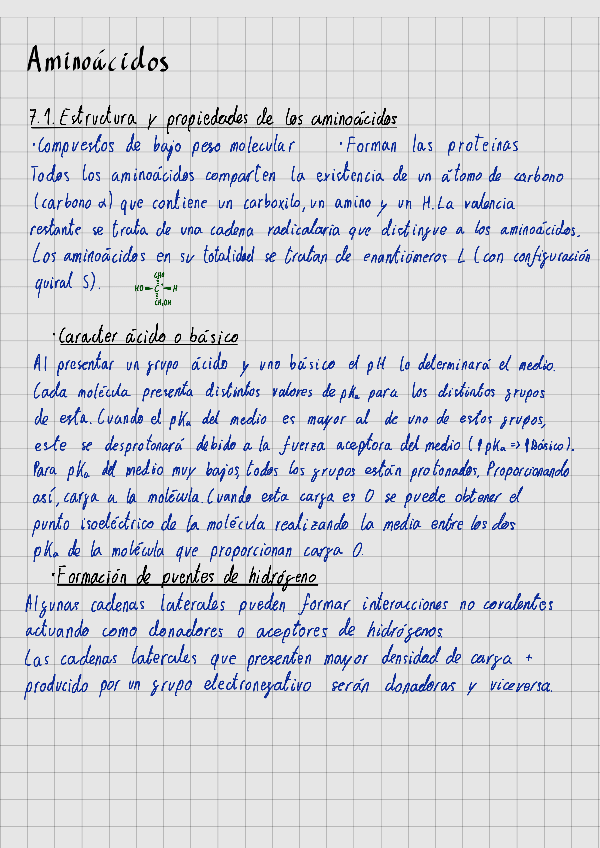 Aminoácidos
7.1. Estructura y propiedades de los aminoácidos
·Compuestos de bajo peso molecular ·Forman las proteinas
Todos los aminoácidos comparten la existencia de un átomo de carbono
(carbono α) que contiene un carboxilo, un amino y un H. La valencia
restante se trata de una cadena radicalaria que distingue a los aminoácidos.
Los aminoácidos en su totalidad se tratan de enantiómeros L (con configuración
quiral S).
CHO
HO-C-H
CH₂OH
·Caracter ácido o básico
Al presentar un grupo ácido y uno básico el pH lo determinará el medio.
Cada molécula presenta distintos valores de pKa para los distintos grupos
de esta. Cuando el pKa del medio es mayor al de uno de estos grupos,
este se desprotonará debido a la fuerza aceptora del medio (↑pKa => ↑Básico).
Para pKa del medio muy bajos, todos los grupos están protonados. Proporcionando
así, carga a la molécula. Cuando esta carga es 0 se puede obtener el
punto isoeléctrico de la molécula realizando la media entre los dos
pKa de la molécula que proporcionan carga 0.
·Formación de puentes de hidrógeno
Algunas cadenas laterales pueden formar interacciones no covalentes
actuando como donadores o aceptores de hidrógenos
Las cadenas laterales que presenten mayor densidad de carga +
producido por un grupo electronegativo serán donadoras y viceversa.